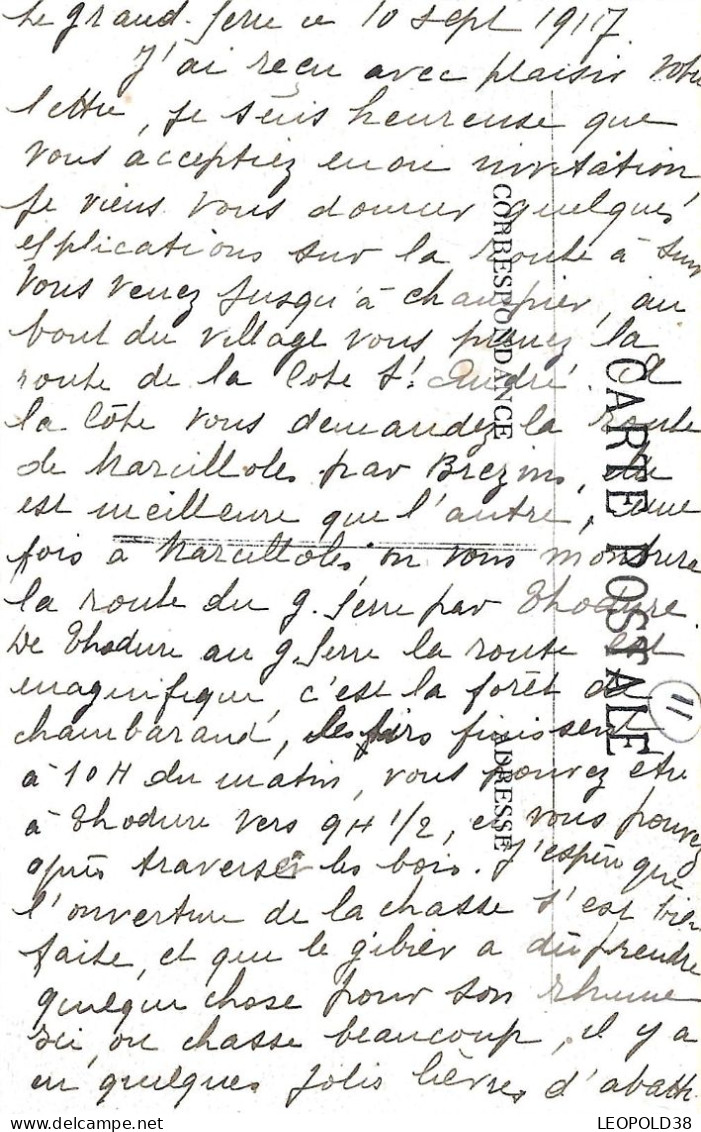 Le grand-Serre ce 10 sept 1917
J'ai reçu avec plaisir votre
lettre, je suis heureuse que
vous acceptiez mon invitation,
je viens vous donner quelques
explications sur la route à suiv
Vous venez jusqu'à champier, au
bout du village vous prenez la
route de la Cote St. André. A
la Côte vous demandez la route
de Marcilloles par Brezins, elle
est meilleure que l'autre, une
fois à Marcilloles on vous montrera
la route du g. Serre par Thodure.
De Thodure au g. Serre la route est
magnifique, c'est la forêt de
chambarand, les tirs finissent
à 10H du matin, vous pouvez être
à Thodure vers 9H 1/2, et vous pouvez
après traverser les bois. J'espère que
l'ouverture de la chasse s'est bien
faite, et que le gibier a dû prendre
quelque chose pour son rhume
ici, on chasse beaucoup, il y a
eu quelques jolis lièvres d'abatt
CARTE POSTALE
CORRESPONDANCE
ADRESSE
11
LEOPOLD38